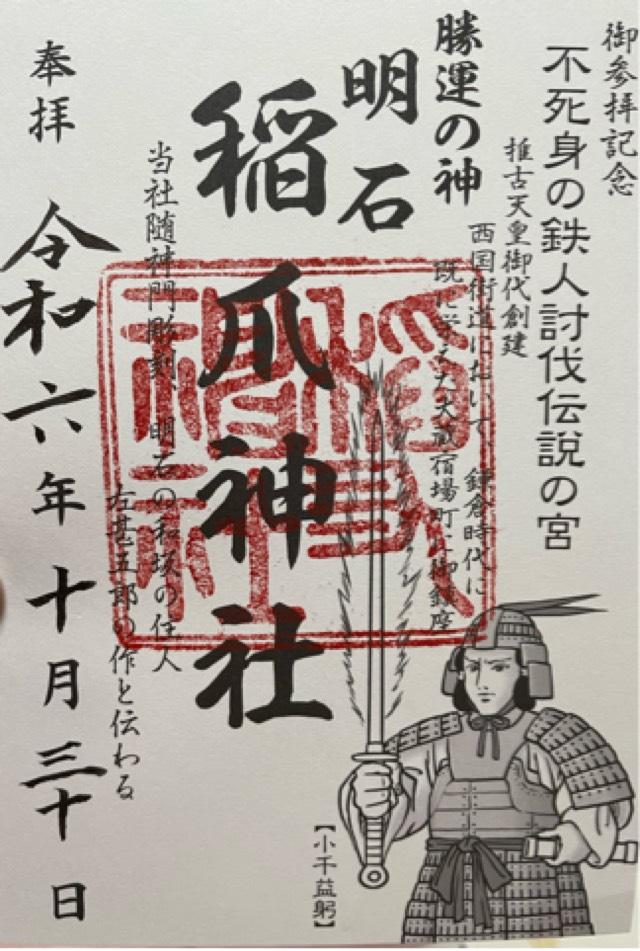 御参拝記念
不死身の鉄人討伐伝説の宮
推古天皇御代創建
西国街道において 鎌倉時代に
既に栄えた大蔵宿場町に御鎮座
勝運の神
明石
稲爪神社
当社随神門彫刻、明石の和坂の住人
左甚五郎の作と伝わる
奉拝
令和六年十月三十日
【小千益躬】